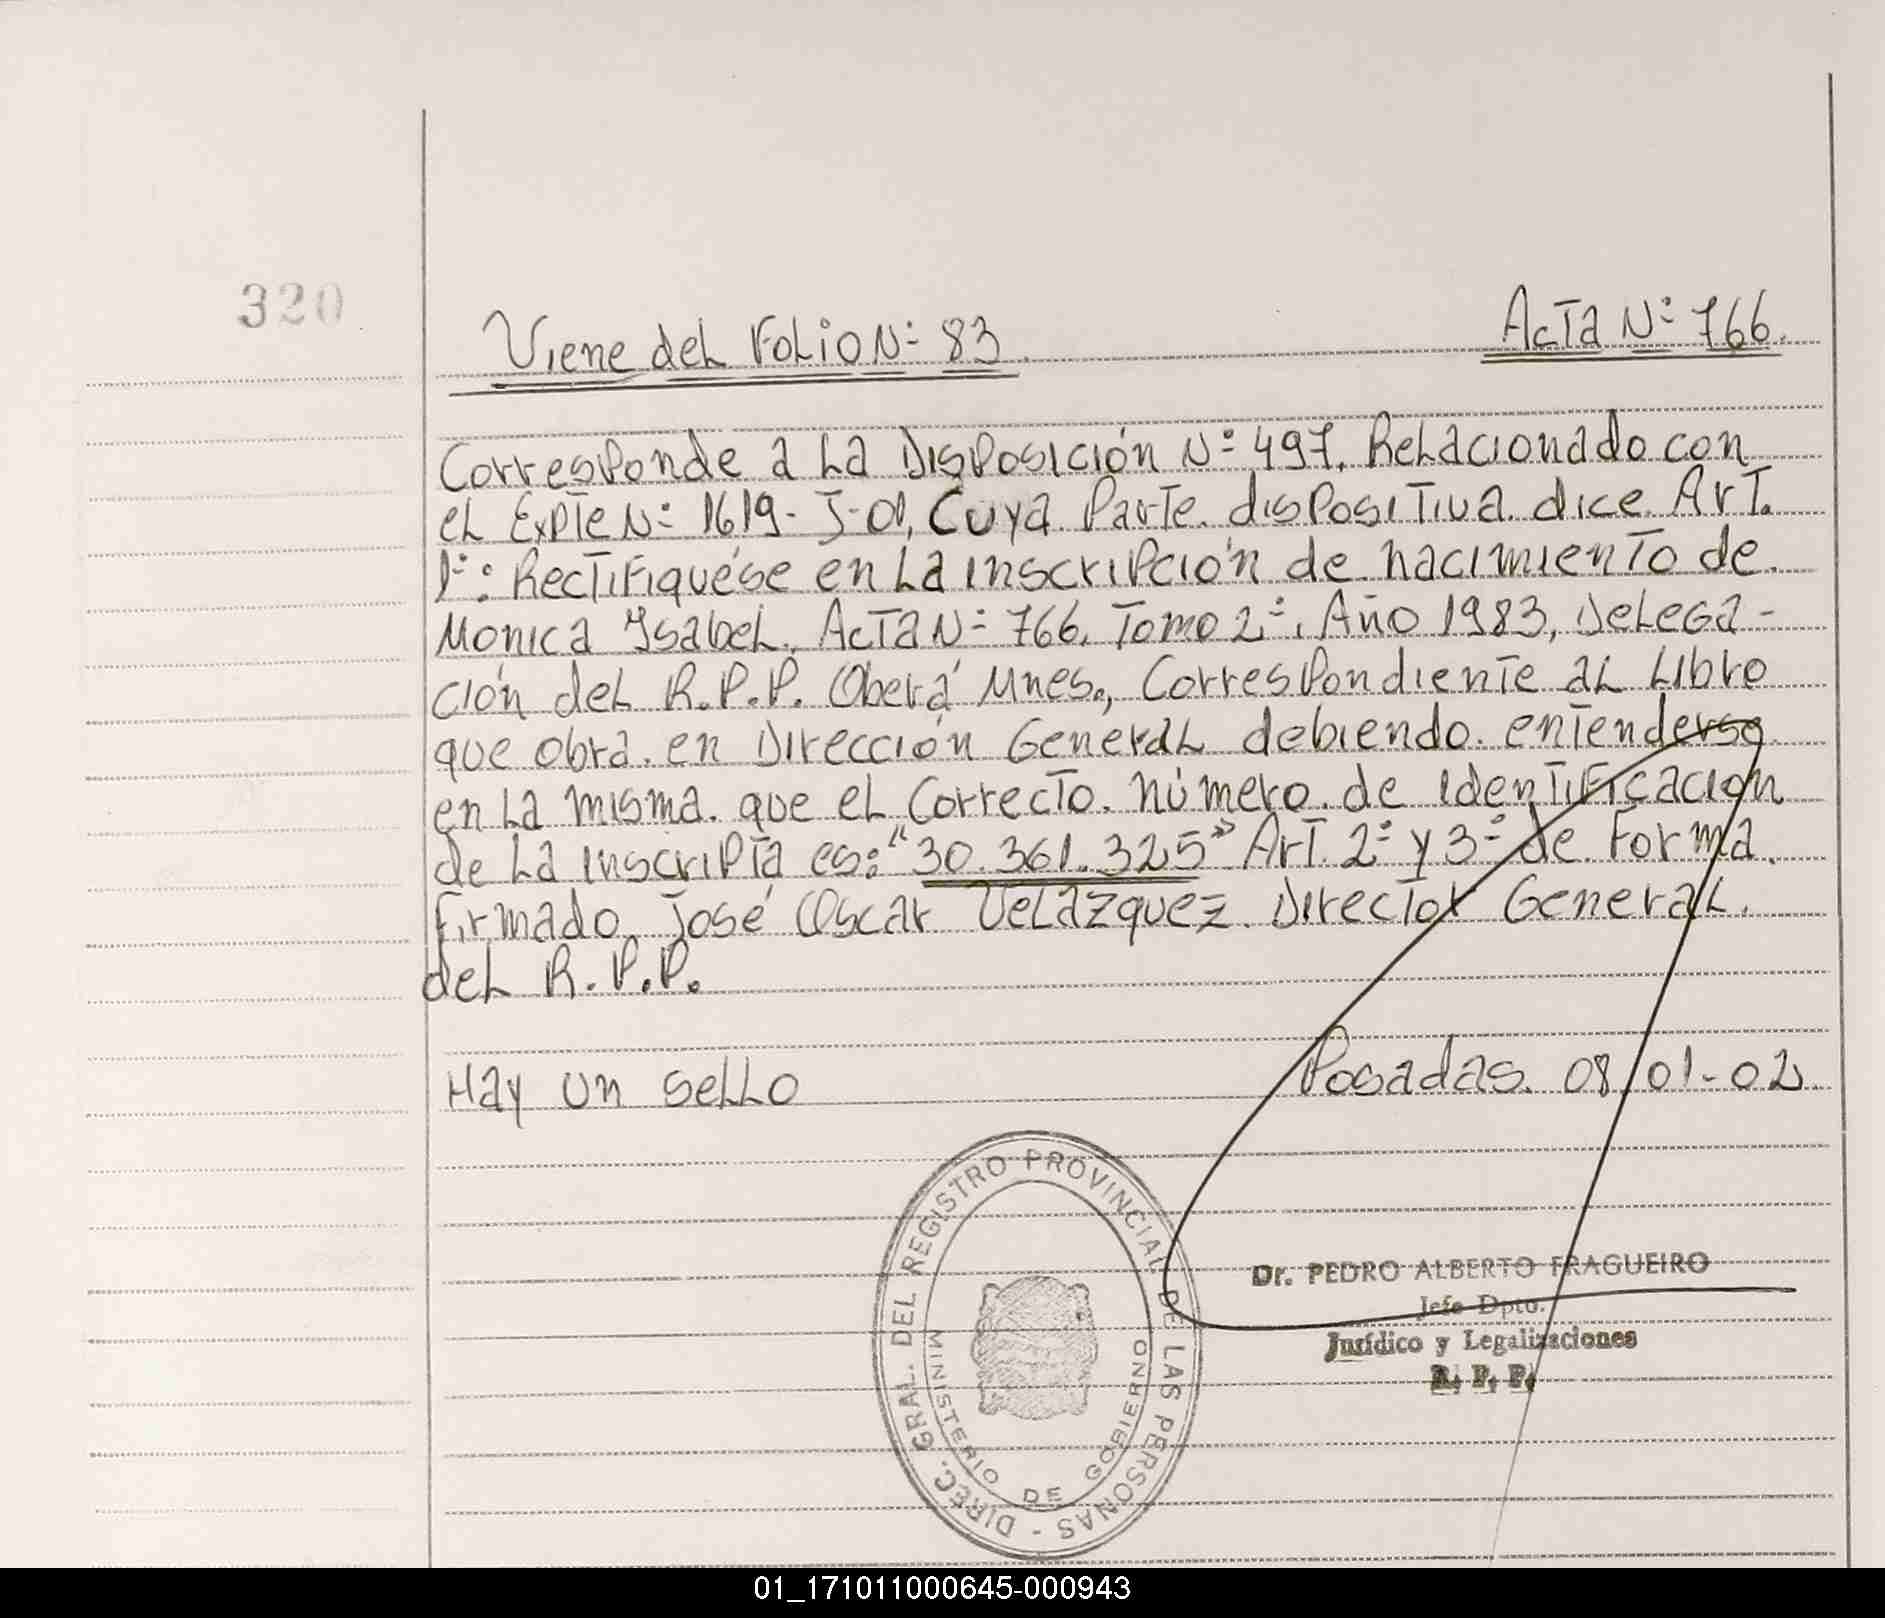 320
Viene del Folio Nº 83
Acta Nº 766.
Corresponde a la Disposición Nº 497. Relacionado con
el Expte Nº 1619-J-01, Cuya Parte dispositiva dice Art.
1º: Rectifiquése en la inscripción de nacimiento de
Monica Ysabel. Acta Nº 766. Tomo 2º. Año 1983, Delega-
ción del R.P.P. Oberá Mnes., Correspondiente al Libro
que obra en Dirección General debiendo entenderse
en la misma que el Correcto número de identificación
de la inscripta es: "30.361.325" Art. 2º y 3º de Forma.
Firmado José Oscar Velázquez. Director General.
del R.P.P.
Hay un sello
Posadas. 08/01-02
DIREC. GRAL. DEL REGISTRO PROVINCIAL DE LAS PERSONAS -
MINISTERIO DE GOBIERNO
Dr. PEDRO ALBERTO FRAGUEIRO
Jefe Dpto.
Jurídico y Legalizaciones
R. P. P.
01_171011000645-000943